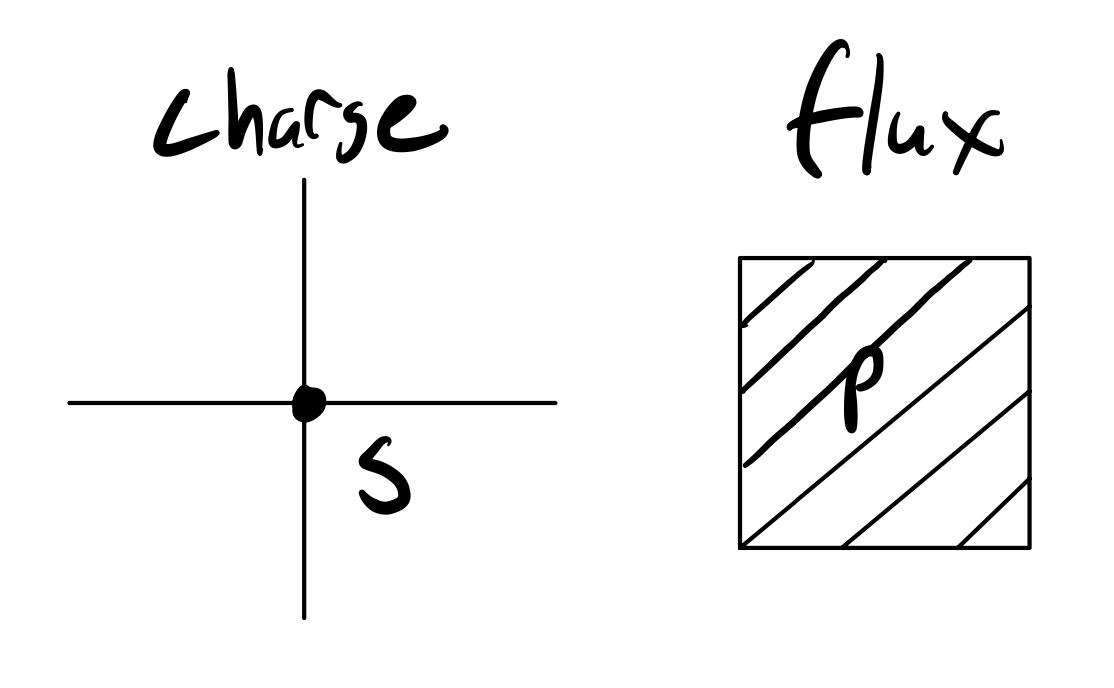 charge
flux
s
p